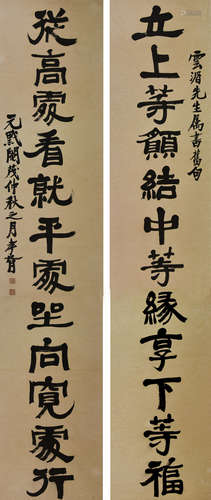 雲湄先生属書舊句
立上等願結中等緣享下等福
從高處看就平處坐向寬處行
元黓閹茂仲秋之月孝胥